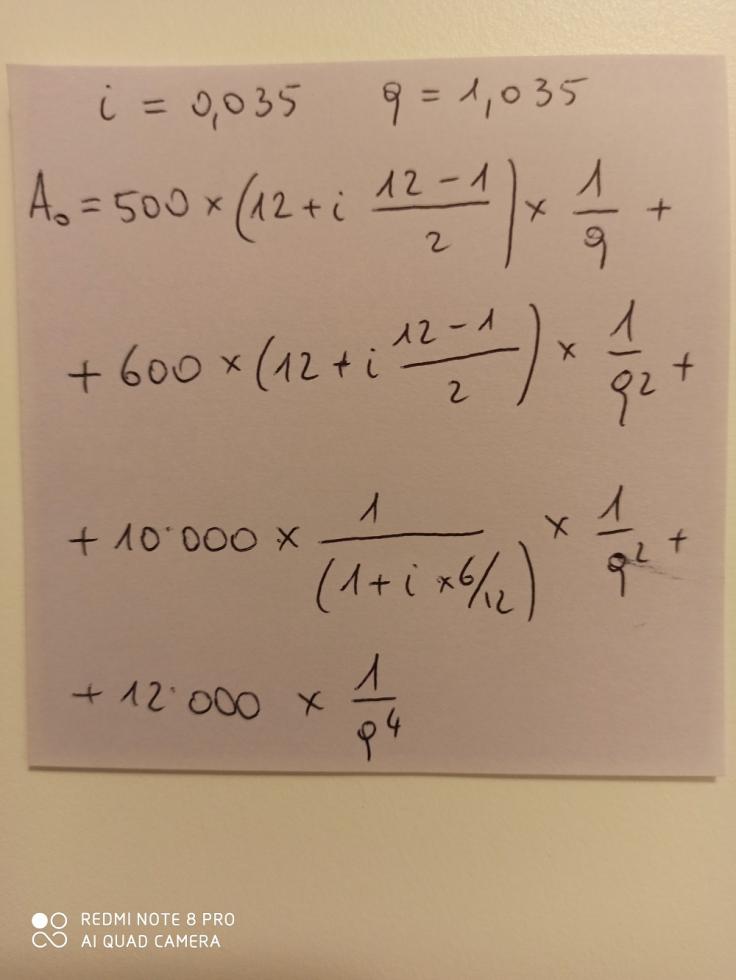 i = 0,035 q = 1,035
A₀ = 500 × (12 + i (12 - 1)/2) × 1/q +
+ 600 × (12 + i (12 - 1)/2) × 1/q² +
+ 10·000 × 1/(1 + i × 6/12) × 1/q² +
+ 12·000 × 1/q⁴
REDMI NOTE 8 PRO
AI QUAD CAMERA